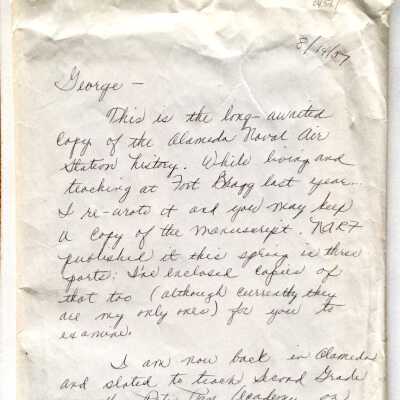 8/19/87
George —
This is the long-awaited
copy of the Alameda Naval Air
Station history. While living and
teaching at Fort Bragg last year
I re-wrote it and you may keep
a copy of the manuscript.
published it this spring in three
parts; I've enclosed copies of
that too (although currently they
are my only ones) for you to
examine.
I am now back in Alameda
and slated to teach Second Grade
Academy on